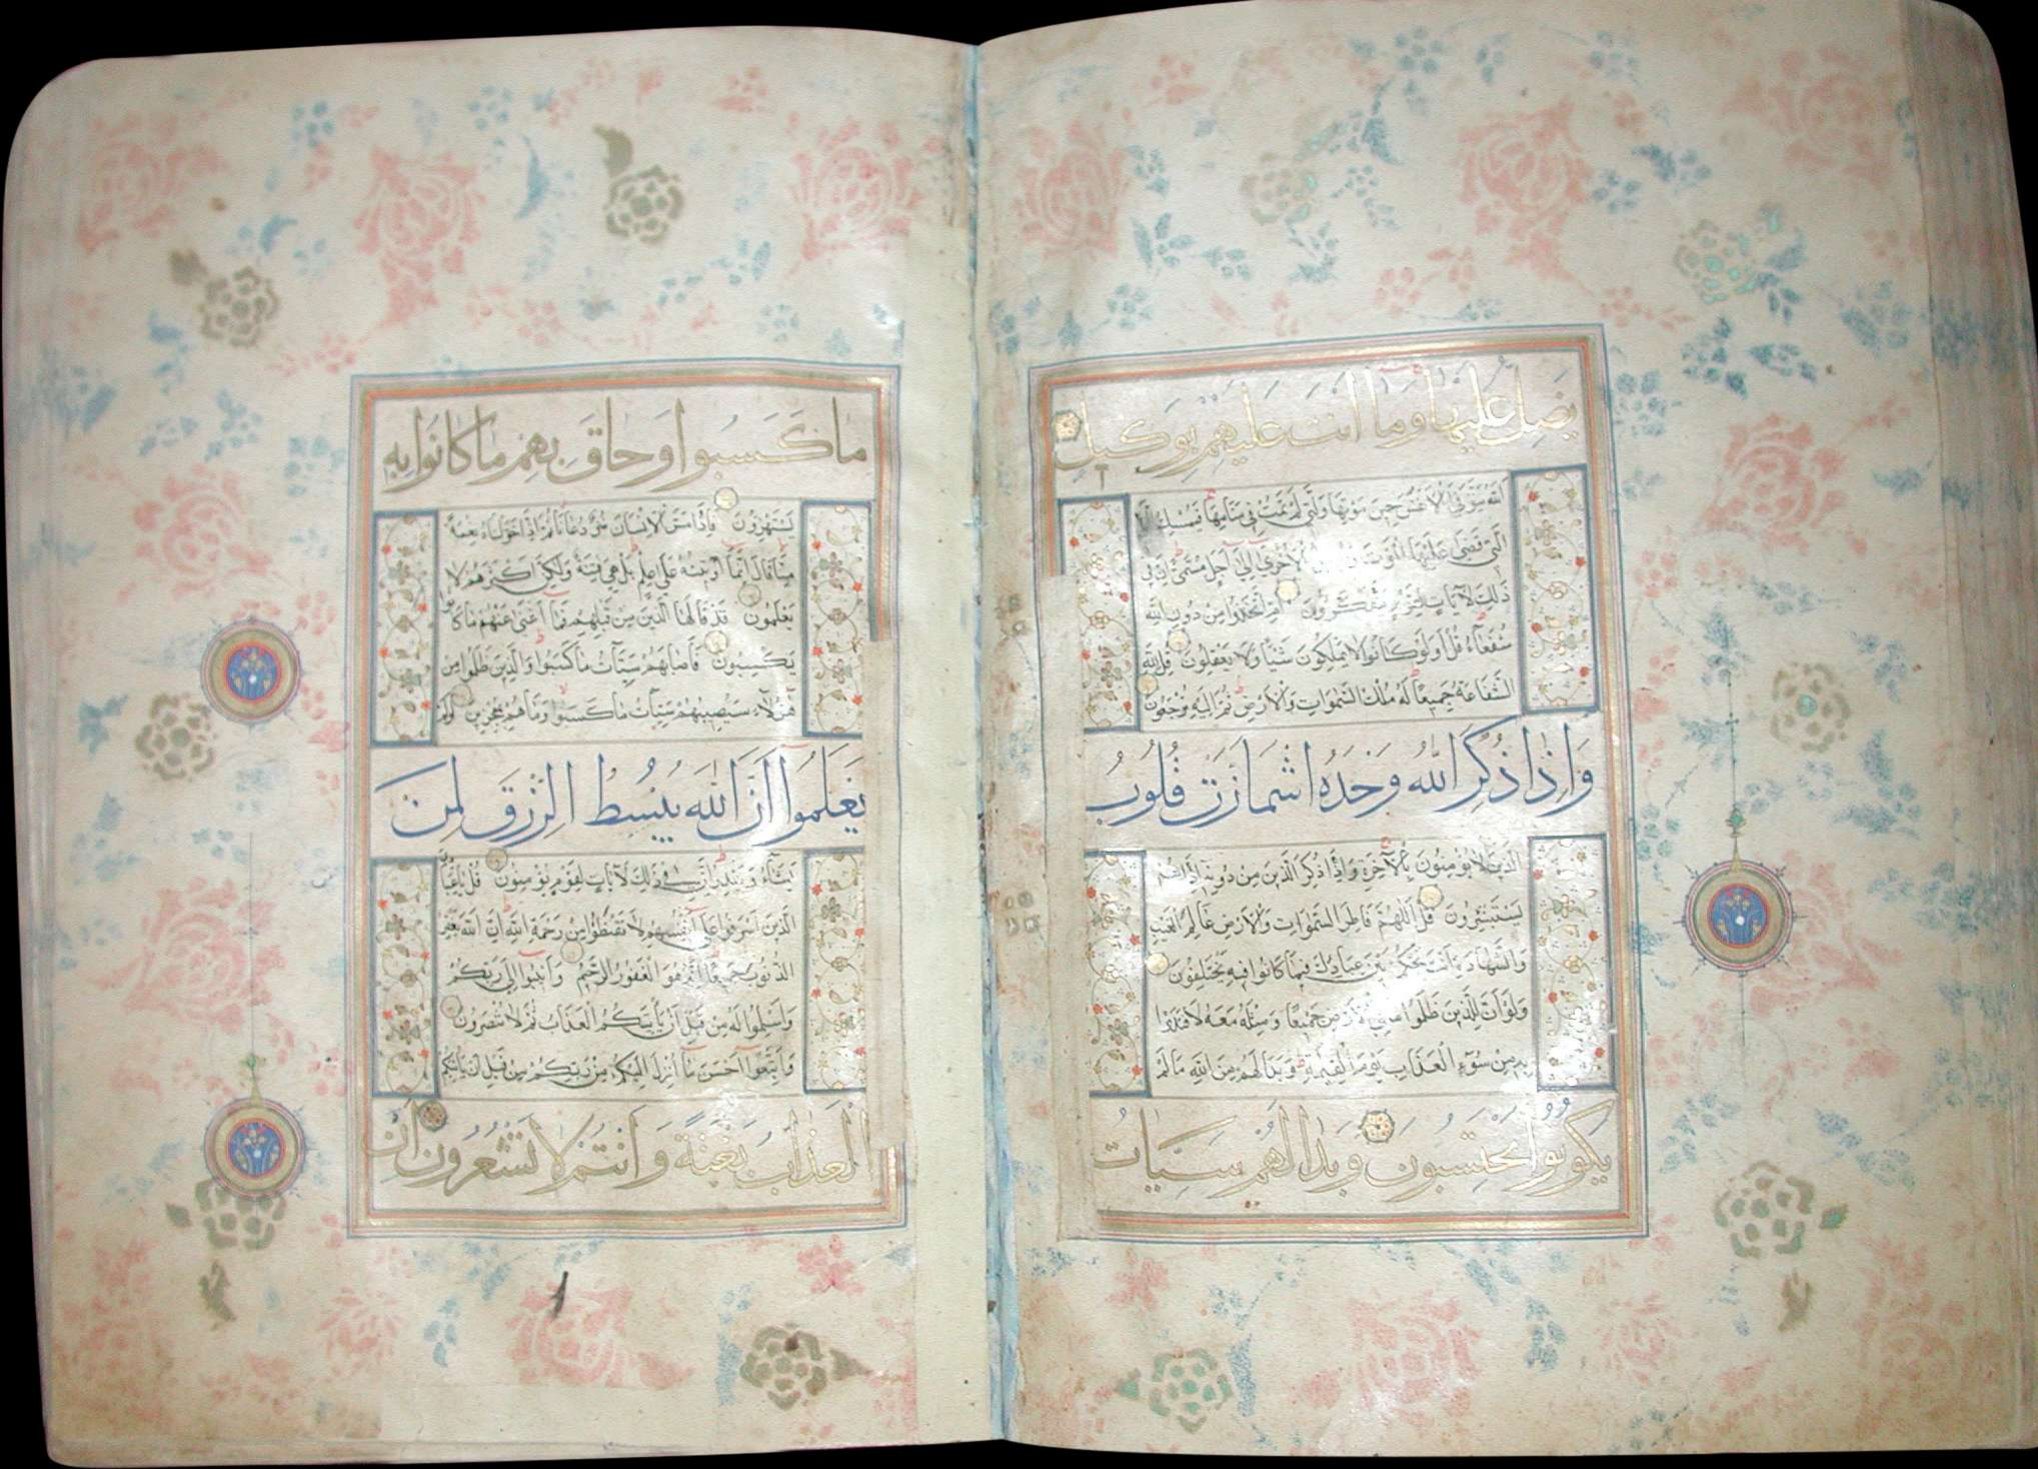 يضل عليها وما انت عليهم بوكيل
الله يتوفى الانفس حين موتها والتي لم تمت في منامها فيمسك
التي قضى عليها الموت الاخرى الى اجل مسمى ان في
ذلك لآيات لقوم يتفكرون ام اتخذوا من دون الله
شفعاء قل اولو كانوا لا يملكون شيأ ولا يعقلون قل لله
الشفاعة جميعا له ملك السموات والارض ثم اليه ترجعون
واذا ذكر الله وحده اشمأزت قلوب
الذين لا يؤمنون بالآخرة واذا ذكر الذين من دونه اذا هم
يستبشرون قل اللهم فاطر السموات والارض عالم الغيب
والشهادة انت تحكم بين عبادك فيما كانوا فيه يختلفون
ولو ان للذين ظلموا ما في الارض جميعا ومثله معه لافتدوا
به من سوء العذاب يوم القيمة وبدا لهم من الله ما لم
يكونوا يحتسبون وبدا لهم سيات
ما كسبوا وحاق بهم ما كانوا به
يستهزؤن فاذا مس الانسان ضر دعانا ثم اذا خولناه نعمة
منا قال انما اوتيته على علم بل هي فتنة ولكن اكثرهم لا
يعلمون قد قالها الذين من قبلهم فما اغنى عنهم ما كانوا
يكسبون فاصابهم سيآت ما كسبوا والذين ظلموا من
هؤلآء سيصيبهم سيآت ما كسبوا وما هم بمعجزين اولم
يعلموا ان الله يبسط الرزق لمن
يشآء ويقدر ان في ذلك لآيات لقوم يؤمنون قل يا عبادي
الذين اسرفوا على انفسهم لا تقنطوا من رحمة الله ان الله يغفر
الذنوب جميعا انه هو الغفور الرحيم وانيبوا الى ربكم
واسلموا له من قبل ان يأتيكم العذاب ثم لا تنصرون
واتبعوا احسن ما انزل اليكم من ربكم من قبل ان يأتيكم
العذاب بغتة وانتم لا تشعرون ان